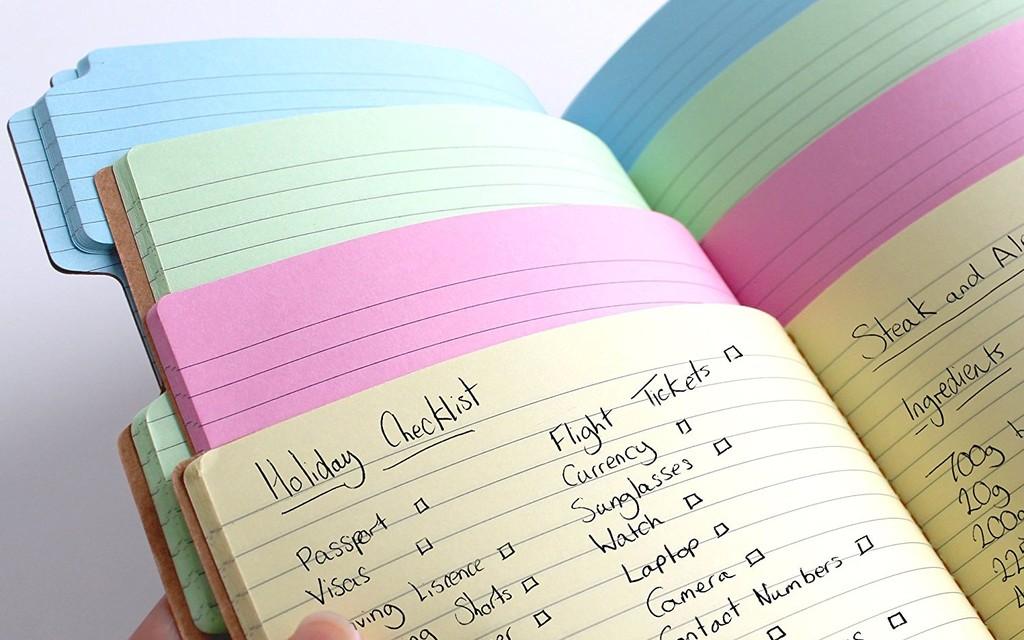 Holiday Checklist
Passport
Visas
Lisrence
Shorts
Flight Tickets
Currency
Sunglasses
Watch
Laptop
Camera
Contact Numbers
Steak and
Ingredients
700g
20g
200g